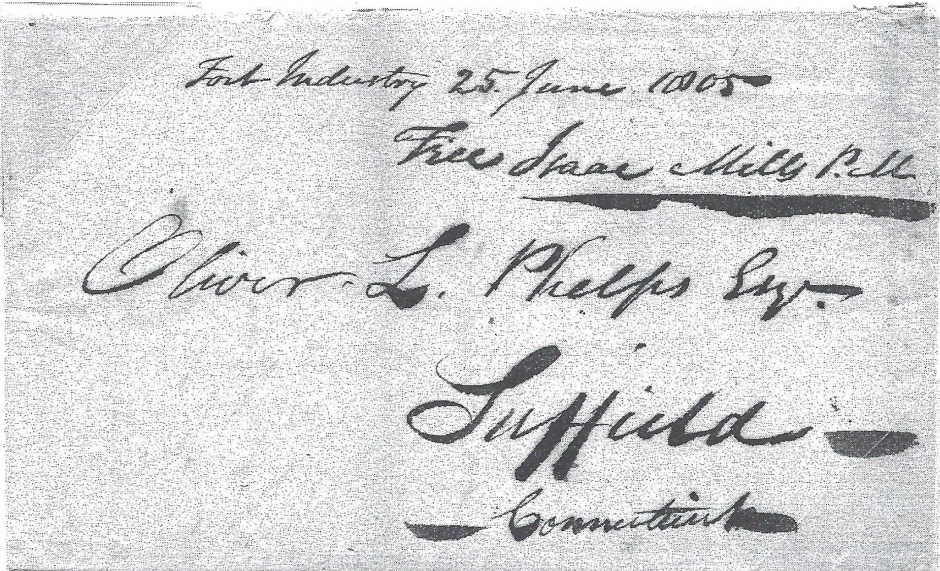 Fort Industry 25. June 1805
Free Isaac Mills P. M.
Oliver L. Phelps Esqr.
Suffield
Connecticut